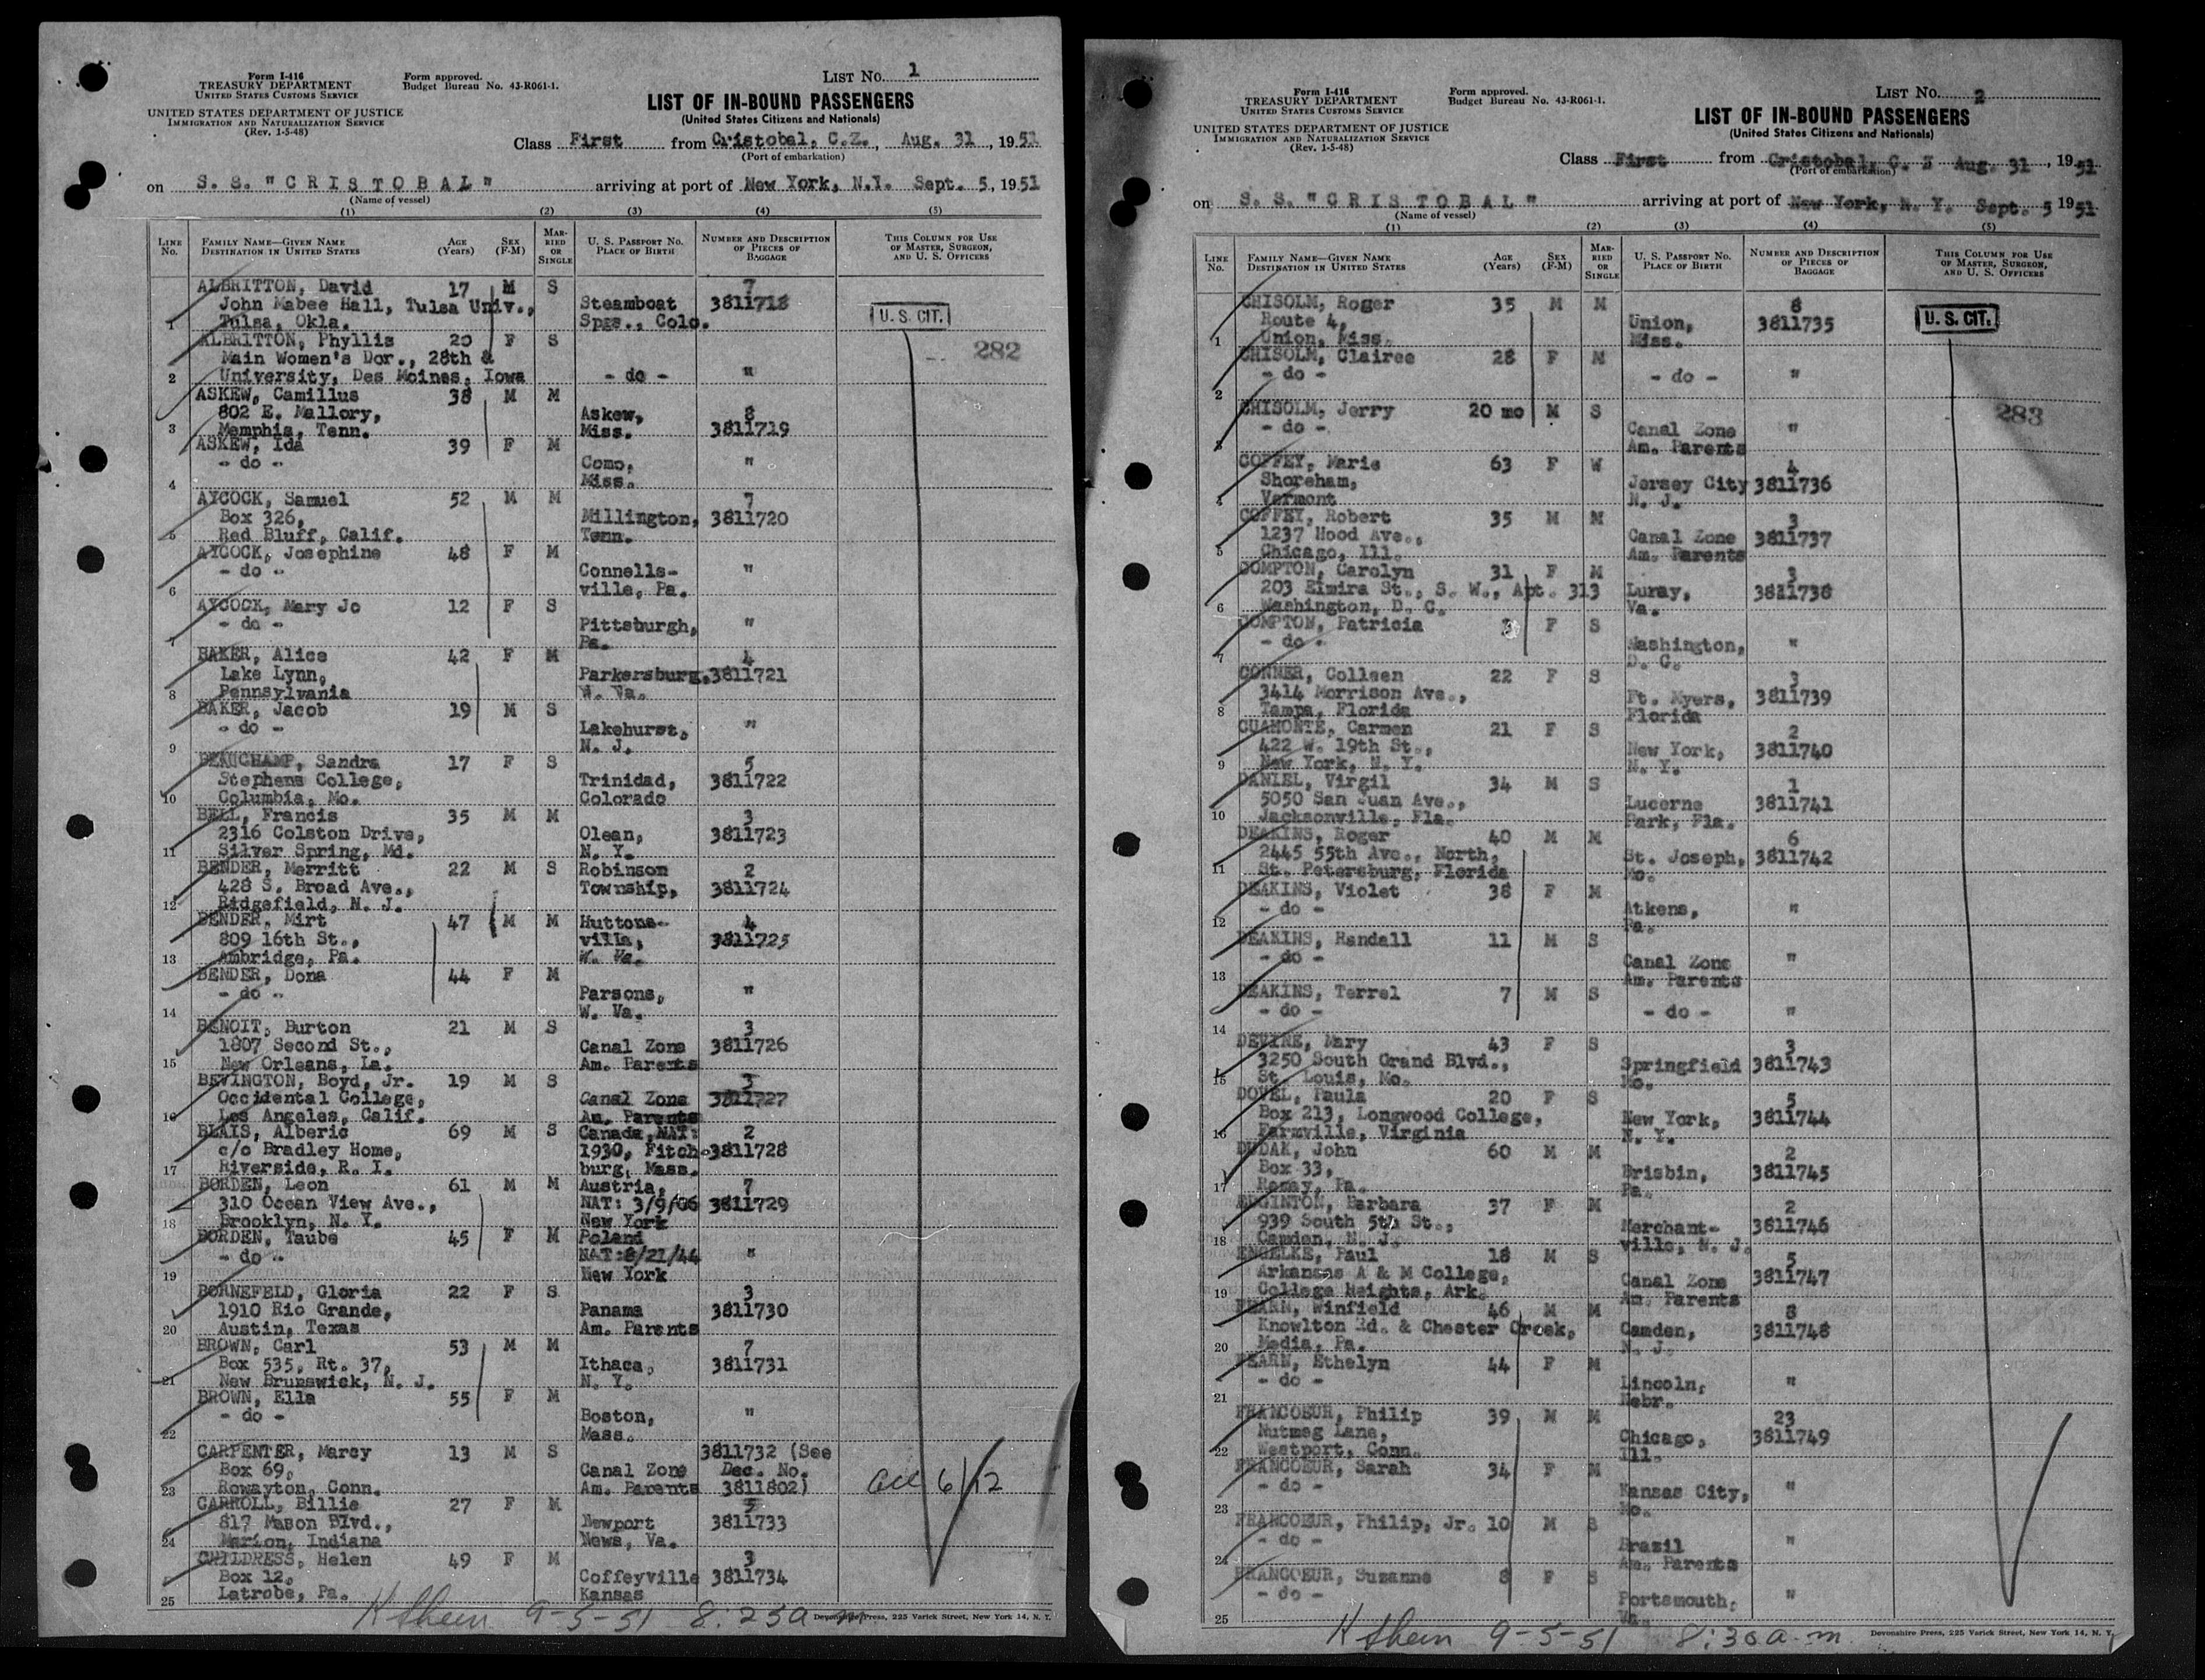 Form I-416
TREASURY DEPARTMENT
UNITED STATES CUSTOMS SERVICE
UNITED STATES DEPARTMENT OF JUSTICE
IMMIGRATION AND NATURALIZATION SERVICE
(Rev. 1-5-48)
Form approved.
Budget Bureau No. 43-R061-1.
LIST No. 1
LIST OF IN-BOUND PASSENGERS
(United States Citizens and Nationals)
Class First from Cristobal, C.Z., Aug. 31, 1951
(Port of embarkation)
on S. S. "CRISTOBAL" arriving at port of New York, N.Y. Sept. 5, 1951
(Name of vessel)
(1) (2) (3) (4) (5)
LINE No. FAMILY NAME—GIVEN NAME DESTINATION IN UNITED STATES AGE (Years) SEX (F-M) MARRIED OR SINGLE U. S. PASSPORT NO. PLACE OF BIRTH NUMBER AND DESCRIPTION OF PIECES OF BAGGAGE THIS COLUMN FOR USE OF MASTER, SURGEON, AND U. S. OFFICERS
ALBRITTON, David 17 M S 7
John Mabee Hall, Tulsa Univ., Steamboat 3811718
1 Tulsa, Okla. Spgs., Colo.
U. S. CIT.
ALBRITTON, Phyllis 20 F S
Main Women's Dor., 28th & 282
2 University, Des Moines, Iowa - do - "
ASKEW, Camillus 38 M M
802 E. Mallory, Askew, 8
3 Memphis, Tenn. Miss. 3811719
ASKEW, Ida 39 F M
- do - Como, "
4 Miss.
AYCOCK, Samuel 52 M M 7
Box 326, Millington, 3811720
5 Red Bluff, Calif. Tenn.
AYCOCK, Josephine 48 F M
- do - Connells- "
6 ville, Pa.
AYCOCK, Mary Jo 12 F S
- do - Pittsburgh, "
7 Pa.
BAKER, Alice 42 F M 4
Lake Lynn, Parkersburg, 3811721
8 Pennsylvania W. Va.
BAKER, Jacob 19 M S
- do - Lakehurst, "
9 N. J.
BEAUCHAMP, Sandra 17 F S 5
Stephens College, Trinidad, 3811722
10 Columbia, Mo. Colorado
BELL, Francis 35 M M 3
2316 Colston Drive, Olean, 3811723
11 Silver Spring, Md. N. Y.
BENDER, Merritt 22 M S Robinson 2
428 S. Broad Ave., Township, 3811724
12 Ridgefield, N. J.
BENDER, Mirt 47 M M Huttons- 4
809 16th St., ville, 3811725
13 Ambridge, Pa. W. Va.
BENDER, Dona 44 F M
- do - Parsons, "
14 W. Va.
BENOIT, Burton 21 M S 3
1807 Second St., Canal Zone 3811726
15 New Orleans, La. Am. Parents
BEVINGTON, Boyd, Jr. 19 M S 3
Occidental College, Canal Zone 3811727
16 Los Angeles, Calif. Am. Parents
BLAIS, Alberic 69 M S Canada, NAT: 2
c/o Bradley Home, 1930, Fitch- 3811728
17 Riverside, R. I. burg, Mass.
BORDEN, Leon 61 M M Austria, 7
310 Ocean View Ave., NAT: 3/9/06 3811729
18 Brooklyn, N. Y. New York
BORDEN, Taube 45 F M Poland
- do - NAT: 8/21/44 "
19 New York
BORNEFELD, Gloria 22 F S 3
1910 Rio Grande, Panama 3811730
20 Austin, Texas Am. Parents
BROWN, Carl 53 M M 7
Box 535, Rt. 37, Ithaca, 3811731
21 New Brunswick, N. J. N. Y.
BROWN, Ella 55 F M
- do - Boston, "
22 Mass.
CARPENTER, Marcy 13 M S 3811732 (See
Box 69, Canal Zone Dec. No.
23 Rowayton, Conn. Am. Parents 3811802)
6/12
CARROLL, Billie 27 F M 5
817 Mason Blvd., Newport 3811733
24 Marion, Indiana News, Va.
CHILDRESS, Helen 49 F M 3
Box 12, Coffeyville 3811734
25 Latrobe, Pa. Kansas
9-5-51 8:25 a.m.
Devonshire Press, 225 Varick Street, New York 14, N. Y.
Form I-416
TREASURY DEPARTMENT
UNITED STATES CUSTOMS SERVICE
UNITED STATES DEPARTMENT OF JUSTICE
IMMIGRATION AND NATURALIZATION SERVICE
(Rev. 1-5-48)
Form approved.
Budget Bureau No. 43-R061-1.
LIST No. 2
LIST OF IN-BOUND PASSENGERS
(United States Citizens and Nationals)
Class First from Cristobal, C. Z Aug. 31, 1951
(Port of embarkation)
on S. S. "CRISTOBAL" arriving at port of New York, N. Y. Sept. 5 1951
(Name of vessel)
(1) (2) (3) (4) (5)
LINE No. FAMILY NAME—GIVEN NAME DESTINATION IN UNITED STATES AGE (Years) SEX (F-M) MARRIED OR SINGLE U. S. PASSPORT NO. PLACE OF BIRTH NUMBER AND DESCRIPTION OF PIECES OF BAGGAGE THIS COLUMN FOR USE OF MASTER, SURGEON, AND U. S. OFFICERS
CHISOLM, Roger 35 M M 8
Route 4, Union, 3811735
1 Union, Miss. Miss.
U. S. CIT.
CHISOLM, Clairee 28 F M
- do - - do - "
2
CHISOLM, Jerry 20 mo M S 283
- do - Canal Zone "
3 Am. Parents
COFFEY, Marie 63 F W 4
Shoreham, Jersey City 3811736
4 Vermont N. J.
COFFEY, Robert 35 M M 3
1237 Hood Ave., Canal Zone 3811737
5 Chicago, Ill. Am. Parents
COMPTON, Carolyn 31 F M 3
203 Elmira St., S. W., Apt. 313 Luray, 3811738
6 Washington, D. C. Va.
COMPTON, Patricia 3 F S
- do - Washington, "
7 D. C.
CONNER, Colleen 22 F S 3
3414 Morrison Ave., Ft. Myers, 3811739
8 Tampa, Florida Florida
CUAMONTE, Carmen 21 F S 2
422 W. 19th St., New York, 3811740
9 New York, N. Y. N. Y.
DANIEL, Virgil 34 M S 1
5050 San Juan Ave., Lucerne 3811741
10 Jacksonville, Fla. Park, Fla.
DEAKINS, Roger 40 M M 6
2445 55th Ave., North, St. Joseph, 3811742
11 St. Petersburg, Florida Mo.
DEAKINS, Violet 38 F M
- do - Atkens, "
12 Pa.
DEAKINS, Randall 11 M S
- do - Canal Zone "
13 Am. Parents
DEAKINS, Terrel 7 M S
- do - - do - "
14
DEVINE, Mary 43 F S 3
3250 South Grand Blvd., Springfield 3811743
15 St. Louis, Mo. Mo.
DOVEL, Paula 20 F S 5
Box 213, Longwood College, New York, 3811744
16 Farmville, Virginia N. Y.
DUDAK, John 60 M M 2
Box 33, Brisbin, 3811745
17 Ramey, Pa. Pa.
EDGINTON, Barbara 37 F M 2
939 South 5th St., Merchant- 3811746
18 Camden, N. J. ville, N. J.
ENGELKE, Paul 18 M S 5
Arkansas A & M College, Canal Zone 3811747
19 College Heights, Ark. Am. Parents
FEARN, Winfield 46 M M 8
Knowlton Rd. & Chester Creek, Camden, 3811748
20 Media, Pa. N. J.
FEARN, Ethelyn 44 F M
- do - Lincoln, "
21 Nebr.
FRANCOEUR, Philip 39 M M 23
Nutmeg Lane, Chicago, 3811749
22 Westport, Conn. Ill.
FRANCOEUR, Sarah 34 F M
- do - Kansas City, "
23 Mo.
FRANCOEUR, Philip, Jr. 10 M S
- do - Brazil "
24 Am. Parents
FRANCOEUR, Suzanne 8 F S
- do - Portsmouth, "
25 Va.
9-5-51 8:30 a.m.
Devonshire Press, 225 Varick Street, New York 14, N. Y.